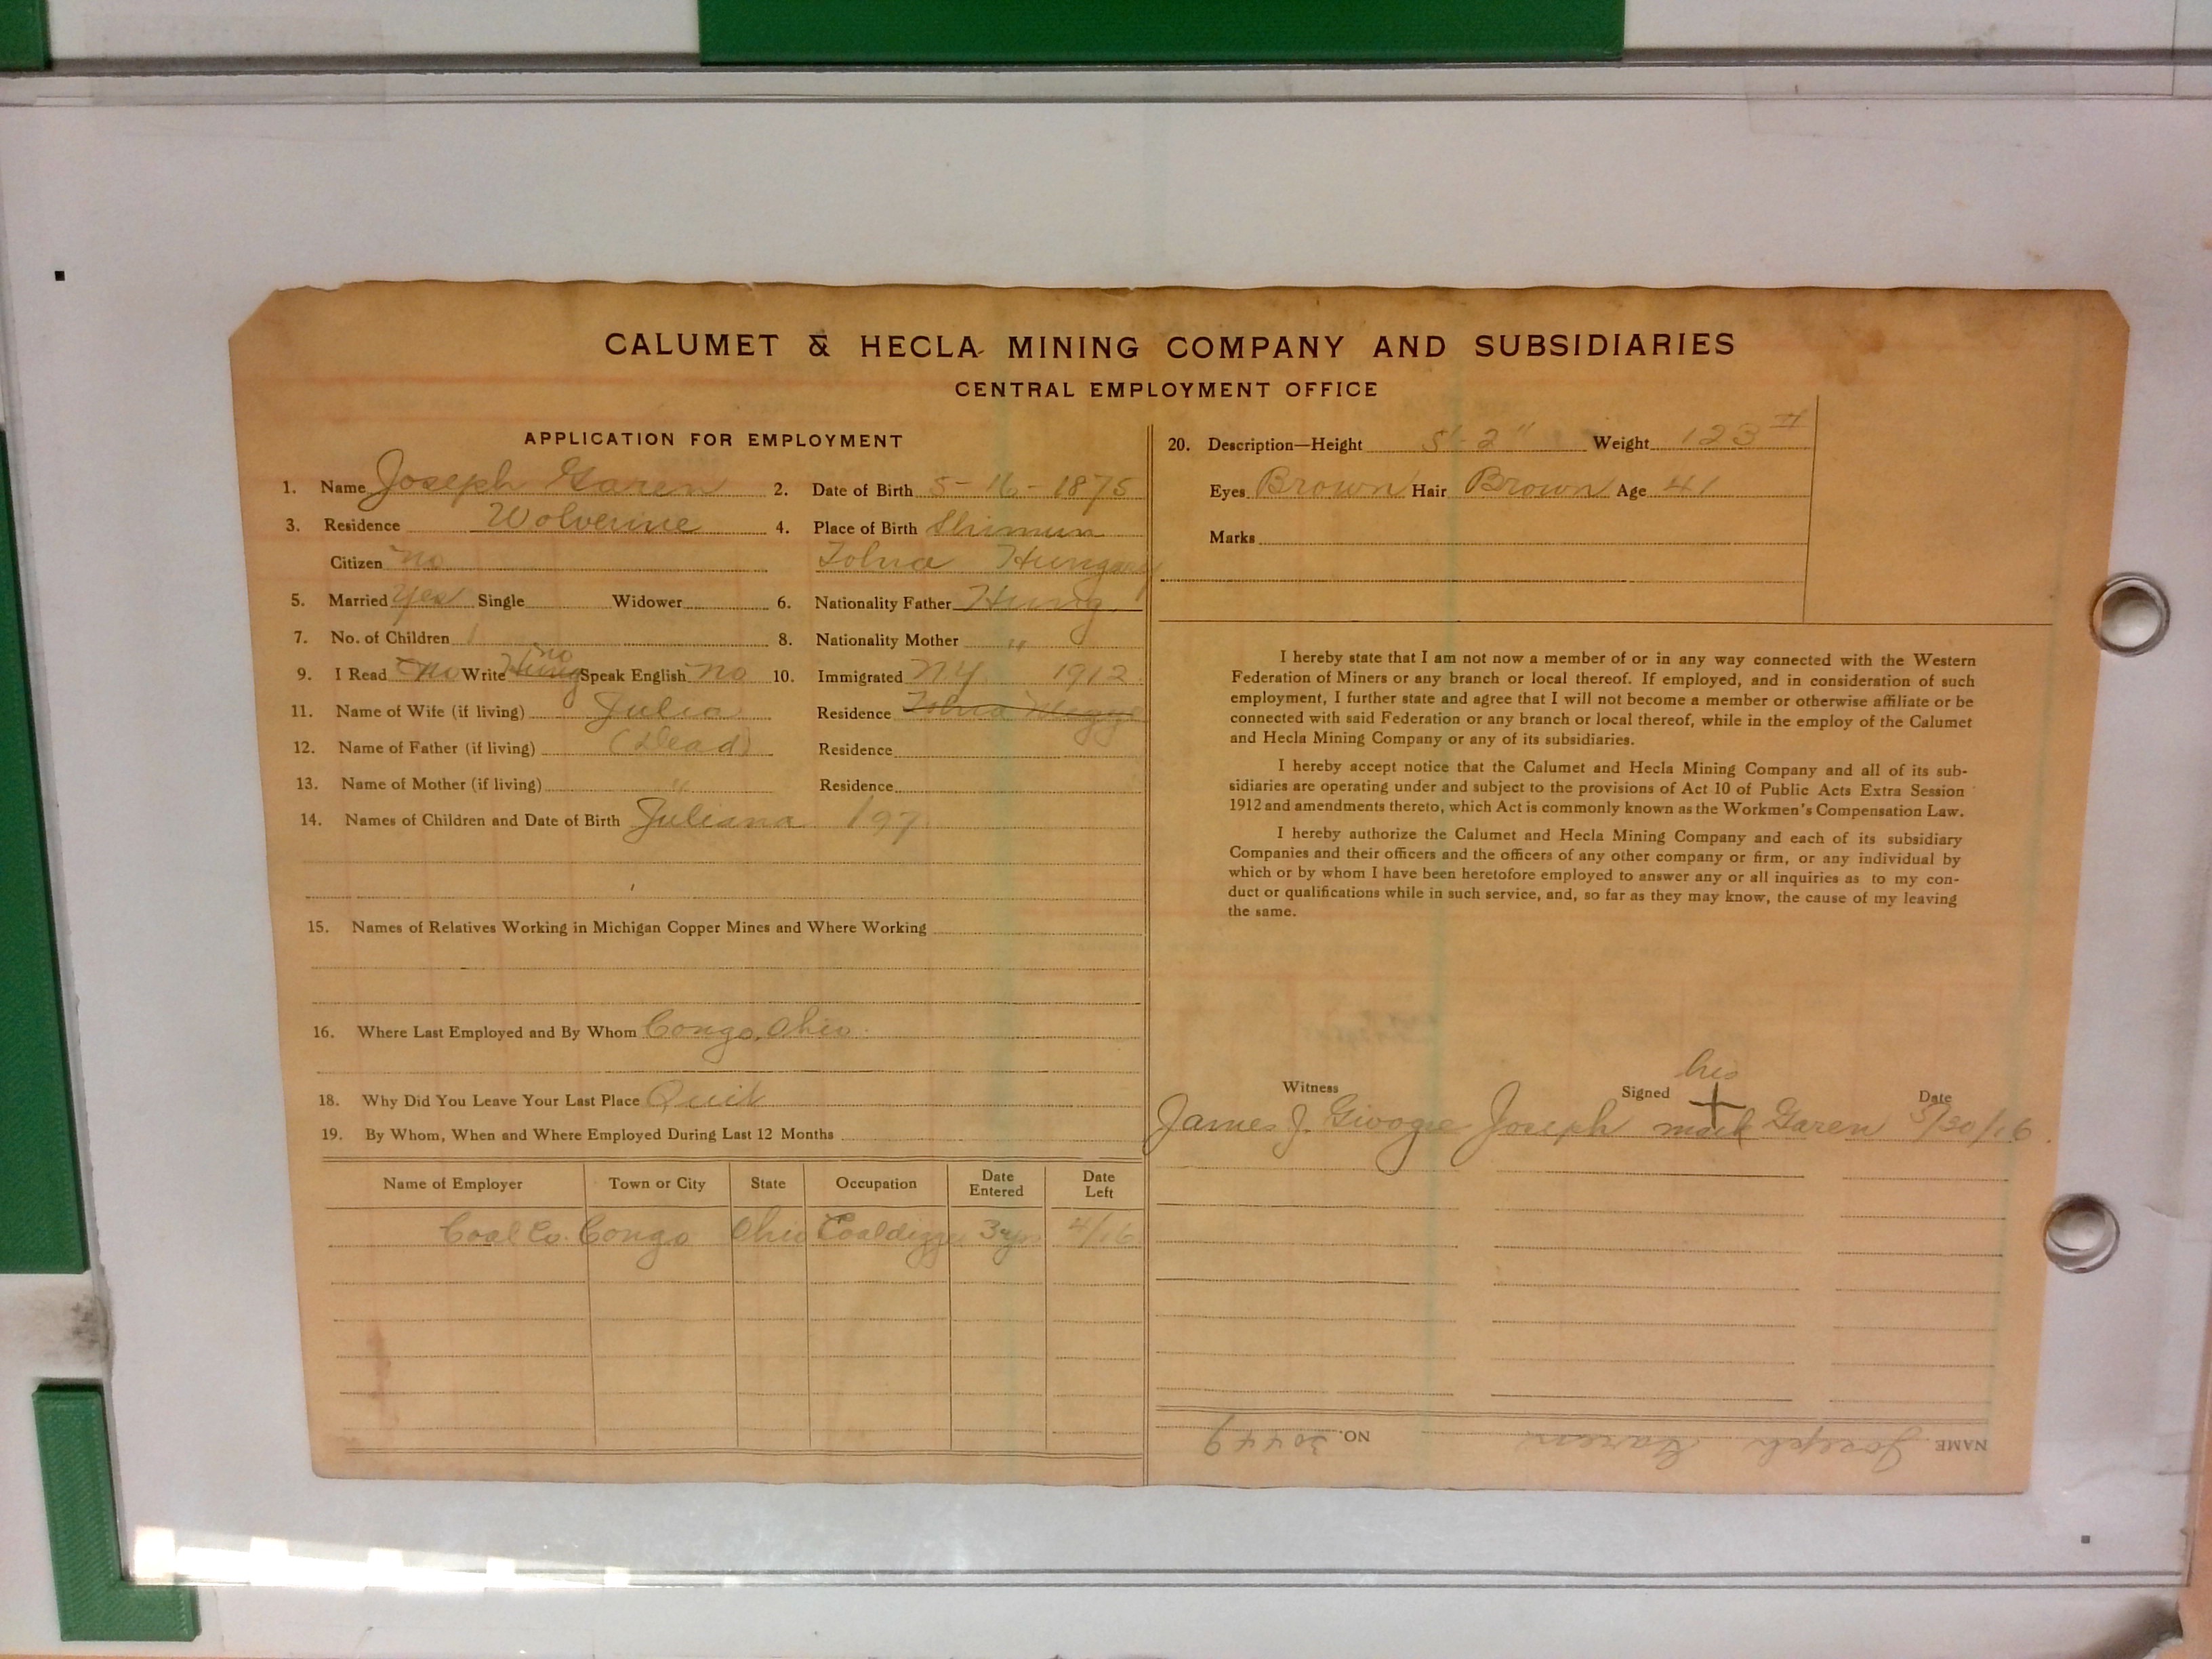 CALUMET & HECLA MINING COMPANY AND SUBSIDIARIES
CENTRAL EMPLOYMENT OFFICE
APPLICATION FOR EMPLOYMENT
1. Name Joseph Garen 2. Date of Birth 5-16-1875
3. Residence Wolverine 4. Place of Birth
Citizen no Tolna Hungary
5. Married Yes Single Widower 6. Nationality Father Hung.
7. No. of Children 1 8. Nationality Mother "
9. I Read no Write Hung no Speak English no 10. Immigrated N.Y. 1912
11. Name of Wife (if living) Julia Residence Tolna Megye
12. Name of Father (if living) (Dead) Residence
13. Name of Mother (if living) " Residence
14. Names of Children and Date of Birth Juliana 197
15. Names of Relatives Working in Michigan Copper Mines and Where Working
16. Where Last Employed and By Whom Congo, Ohio.
18. Why Did You Leave Your Last Place Quit
19. By Whom, When and Where Employed During Last 12 Months
Name of Employer Town or City State Occupation Date Entered Date Left
Coal Co. Congo Ohio Coaldigger 3 yrs 4/16
20. Description—Height 5'-2" Weight 123 #
Eyes Brown Hair Brown Age 41
Marks
I hereby state that I am not now a member of or in any way connected with the Western
Federation of Miners or any branch or local thereof. If employed, and in consideration of such
employment, I further state and agree that I will not become a member or otherwise affiliate or be
connected with said Federation or any branch or local thereof, while in the employ of the Calumet
and Hecla Mining Company or any of its subsidiaries.
I hereby accept notice that the Calumet and Hecla Mining Company and all of its sub-
sidiaries are operating under and subject to the provisions of Act 10 of Public Acts Extra Session
1912 and amendments thereto, which Act is commonly known as the Workmen's Compensation Law.
I hereby authorize the Calumet and Hecla Mining Company and each of its subsidiary
Companies and their officers and the officers of any other company or firm, or any individual by
which or by whom I have been heretofore employed to answer any or all inquiries as to my con-
duct or qualifications while in such service, and, so far as they may know, the cause of my leaving
the same.
his
Witness Signed + Date
James J. Joseph mark Garen 5/30/16
NAME Joseph Garen NO. 30449